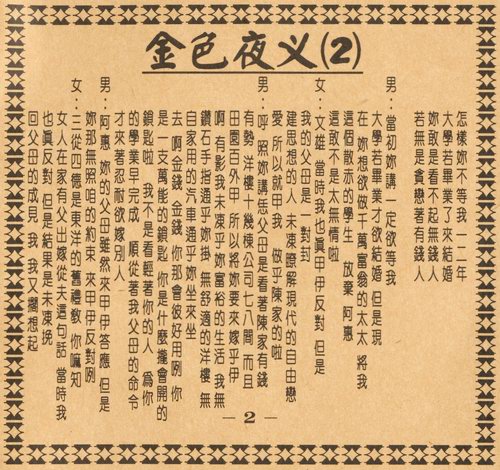 金色夜义(2)
怎樣妳不等我一二年
大學若畢業了來結婚
妳敢是看不起無錢人
若無是貪戀著有錢人
男：當初妳講一定欲等我
大學若畢業才欲結婚 但是現
在妳想欲做千萬富翁的太太 將我
這個散赤的學生 放棄 阿惠
這敢不是太無情啦
女：文雄 當時我也眞甲伊反對 但是
我的父母是一對對
建思想的人 未凍證解現代的自由戀
愛 所以就甲我 做乎陳家的啦
男：呼 照妳講恁父母是看著陳家有錢
有勢 洋樓十幾棟公司七八間 而且
田園百外甲 所以將妳要來嫁乎伊
啊有影我未凍乎妳富裕的生活 我無
鑽石手指通乎妳掛 無舒適的洋樓 無
自家用的汽車通乎妳坐來坐
去 啊金錢 金錢 你那會彼好用咧 你
是一支萬能的鎖匙 你是什麼攏會開的
鎖匙啦 我不是看輕著你的人 爲你
的學業早完成 順從著我父母的命令
才來著忍耐欲嫁別人
男：阿惠 妳的父母雖然來甲伊答應 但是
妳那無照咱的約束 來甲伊反對咧
女：三從四德是東洋的舊禮敎 你嘛知
女人在家有父出嫁從夫這句話 當時我
也眞反對 但是結果是未凍挽
回父母的成見 我 我又擱想起
－2－